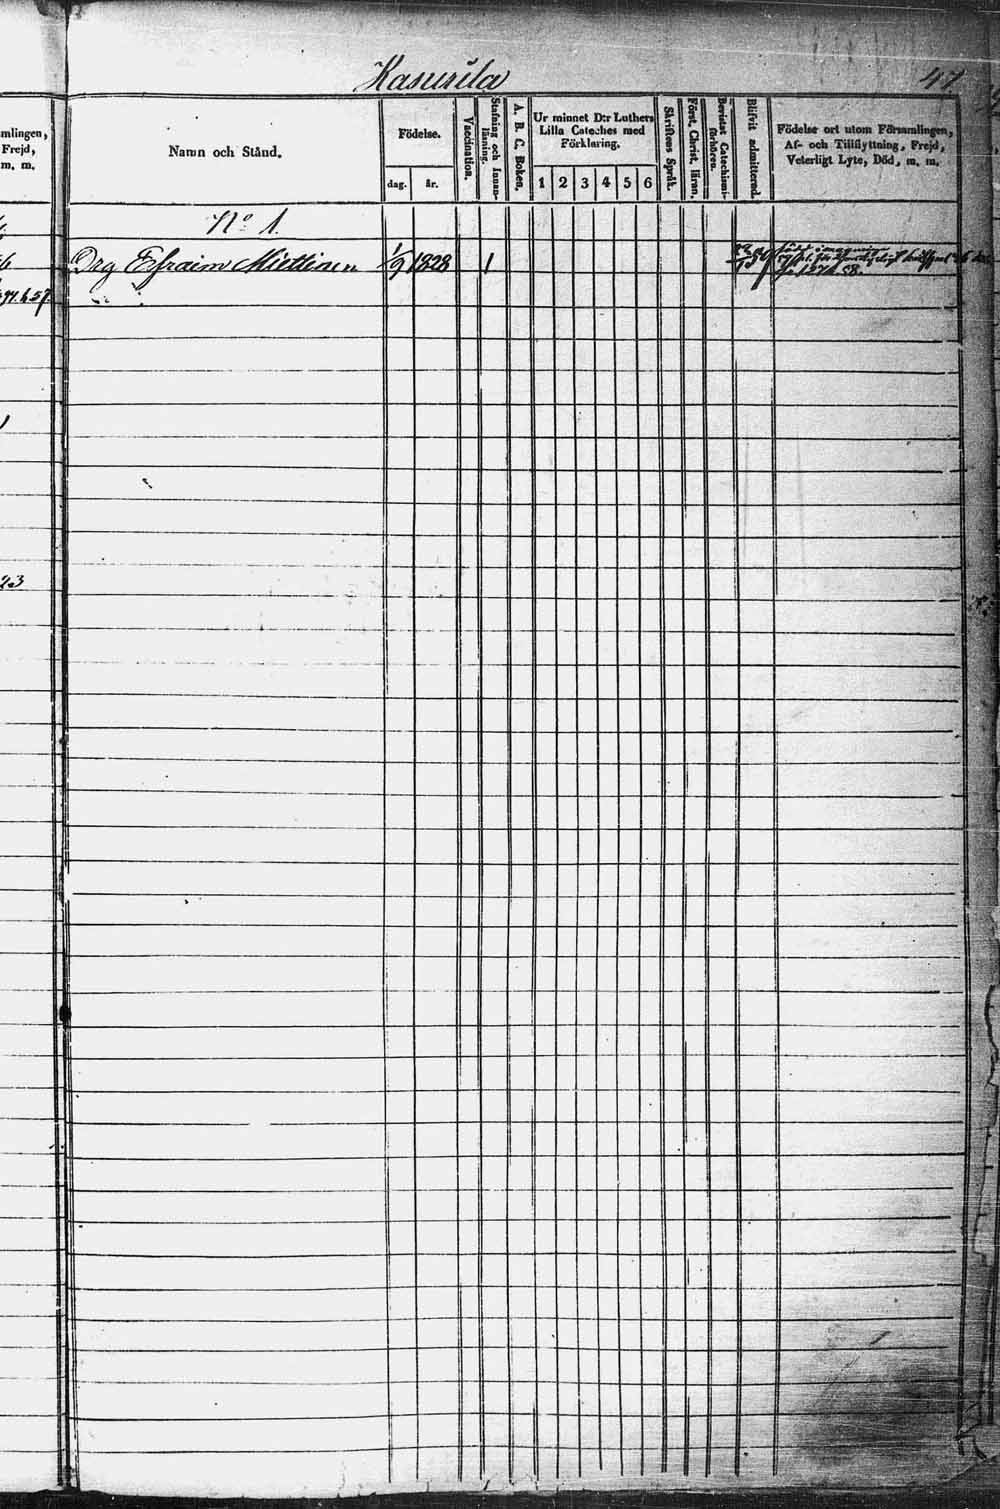 Kasurila
47
mlingen,
Frejd,
m. m.
Namn och Stånd.
Födelse.
dag.
år.
Vaccination.
Stafning och Innan-
läsning.
A. B. C. Boken.
Ur minnet D:r Luthers
Lilla Cateches med
Förklaring.
1 2 3 4 5 6
Skriftens Språk.
Först. Christ. läran.
Bevistat Catechismi-
förhören.
Blifvit admitterad.
Födelse ort utom Församlingen,
Af- och Tillflyttning, Frejd,
Veterligt Lyte, Död, m. m.
No 1.
Drg Efraim Miettinen 1/9 1828 1
23